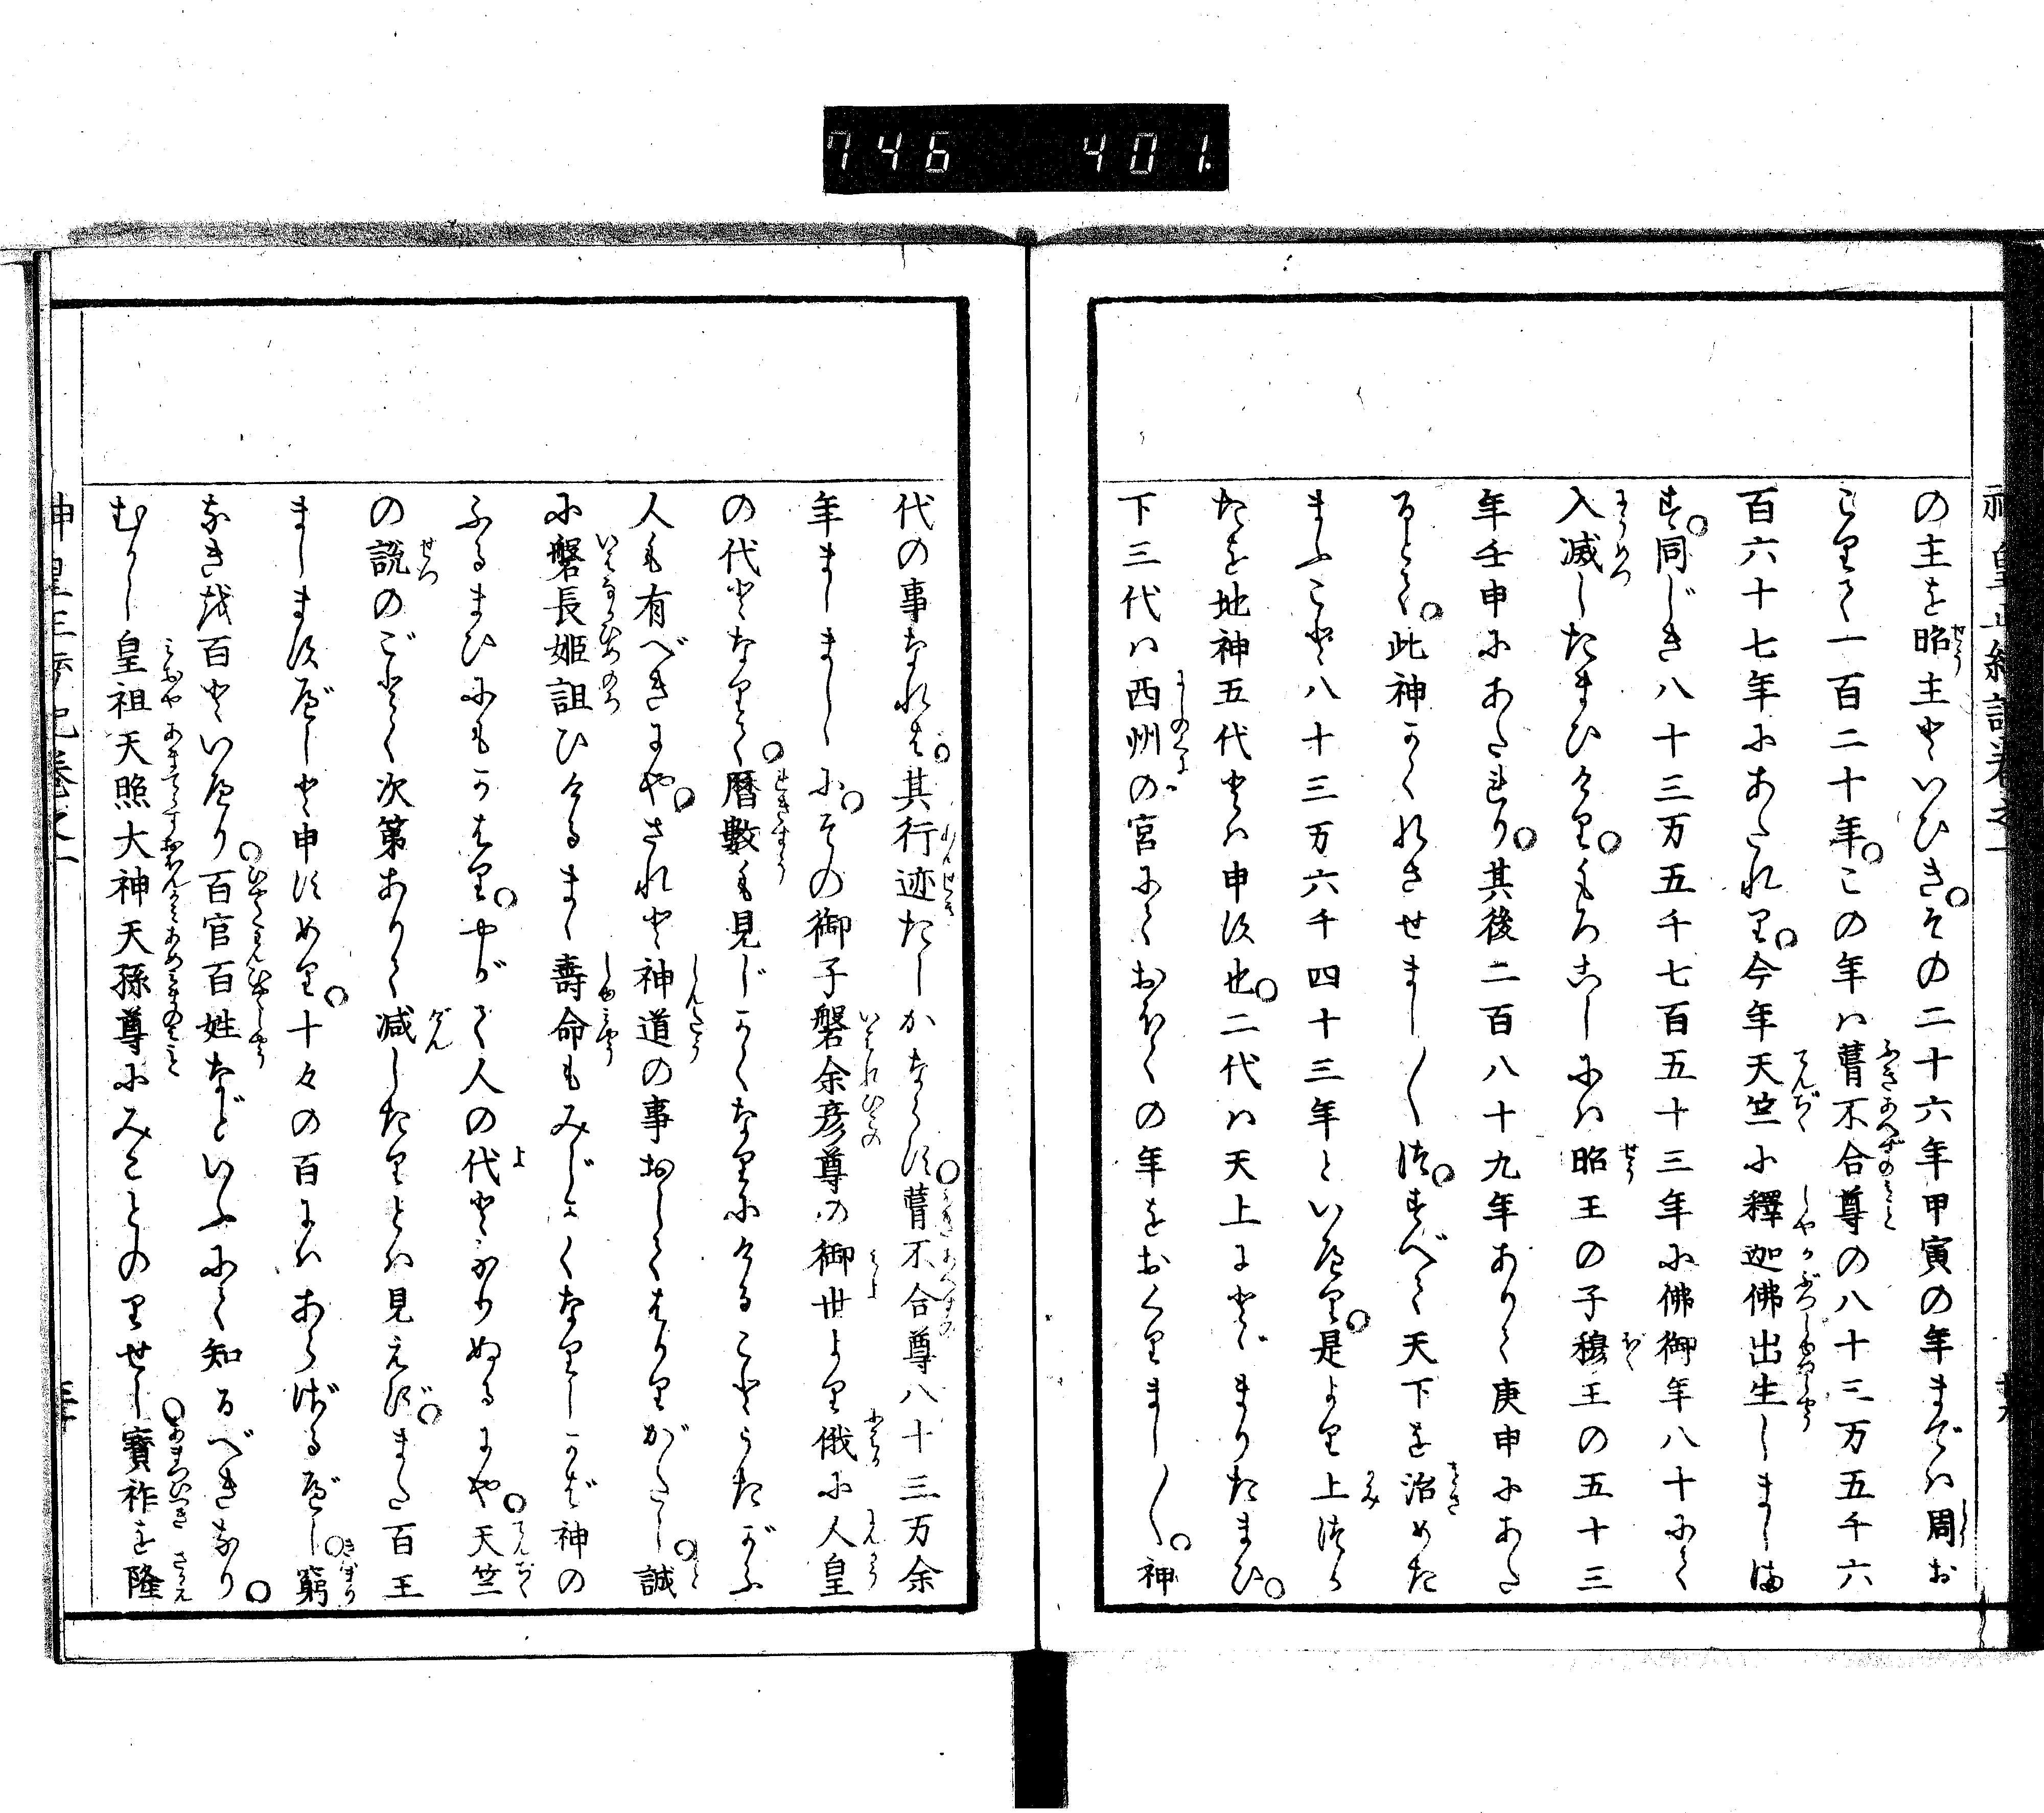 746 401
の主を昭王といひきその二十六年甲寅の年までは周お
こりて一百二十年この年は葺不合尊の八十三万五千六
百六十七年にあたれり今年天竺に釋迦佛出生しまし満
す同じき八十三万五千七百五十三年に佛御年八十にて
入滅したまひけりもろこしには昭王の子穆王の五十三
年壬申にあたれり其後二百八十九年ありて庚申にあた
るとし此神かくれさせまし〳〵すべて天下を治めた
まふこと八十三万六千四十三年といへり是より上つか
たを地神五代とは申す也二代は天上にとゞまりたまひ
下三代は西州の宮にておほくの年をおくりまし〳〵神
代の事なれば其行迹たしかならず葺不合尊八十三万余
年ましましゝにその御子磐余彦尊の御世より俄に人皇
の代となりて暦數も見じかくなりにけることうたがふ
人も有べきにやされど神道の事おしてはかりがたし誠
に磐長姫詛ひけるまゝ壽命もみじかくなりしかば神の
ふるまひにもかはりやがて人の代となりぬるにや天竺
の説のごとく次第ありて減したりとは見えずまた百王
ましますべしと申すめり十々の百にはあらざるべし窮
なきを百といへり百官百姓などいふにて知るべきなり
むかし皇祖天照大神天孫尊にみことのりせし寳祚を隆
神皇正統記巻之一